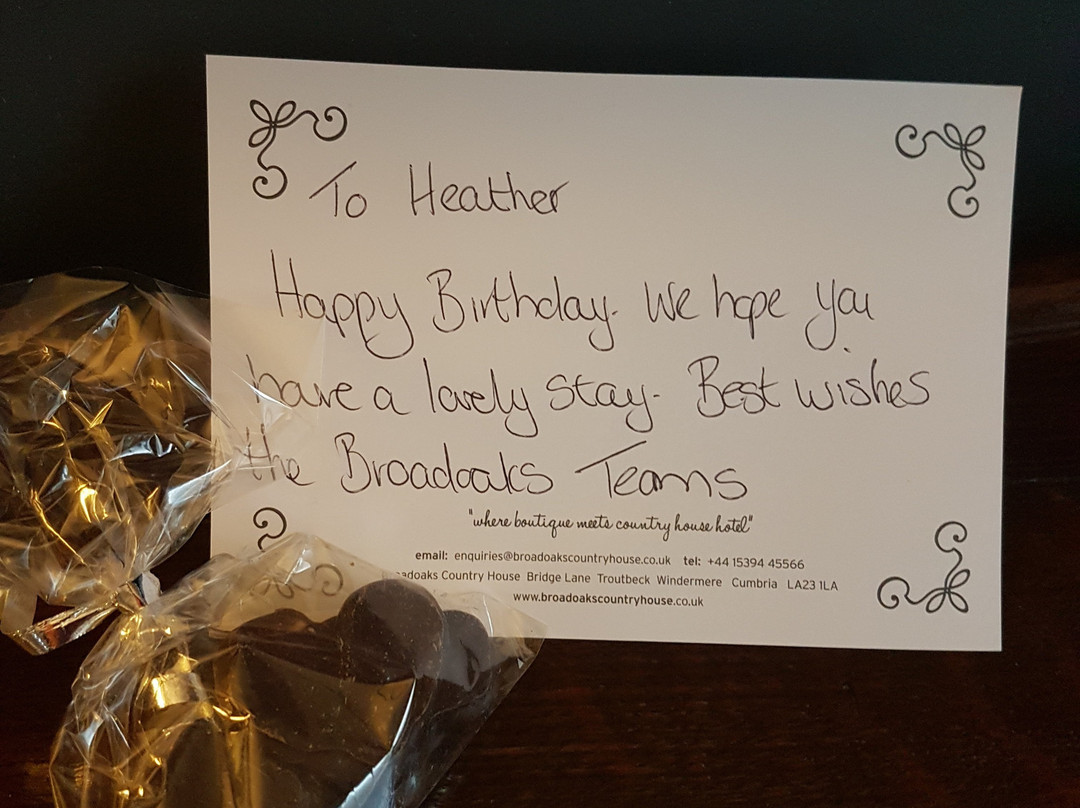 To Heather
Happy Birthday. We hope you
have a lovely stay. Best wishes
the Broadoaks Teams
"where boutique meets country house hotel"
email: enquiries@broadoakscountryhouse.co.uk tel: +44 15394 45566
adoaks Country House Bridge Lane Troutbeck Windermere Cumbria LA23 1LA
www.broadoakscountryhouse.co.uk